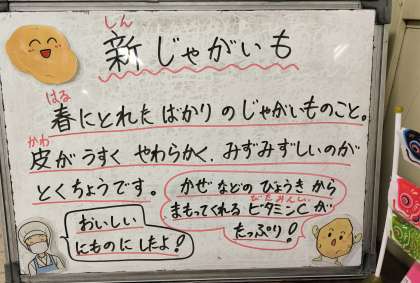 しん
新じゃがいも
はる
春にとれたばかりのじゃがいものこと。
かわ
皮がうすく やわらかく、みずみずしいのが
とくちょうです。
かぜなどのびょうきから
びたみんしい
まもってくれるビタミンCが
たっぷり!
おいしい
にものにしたよ!